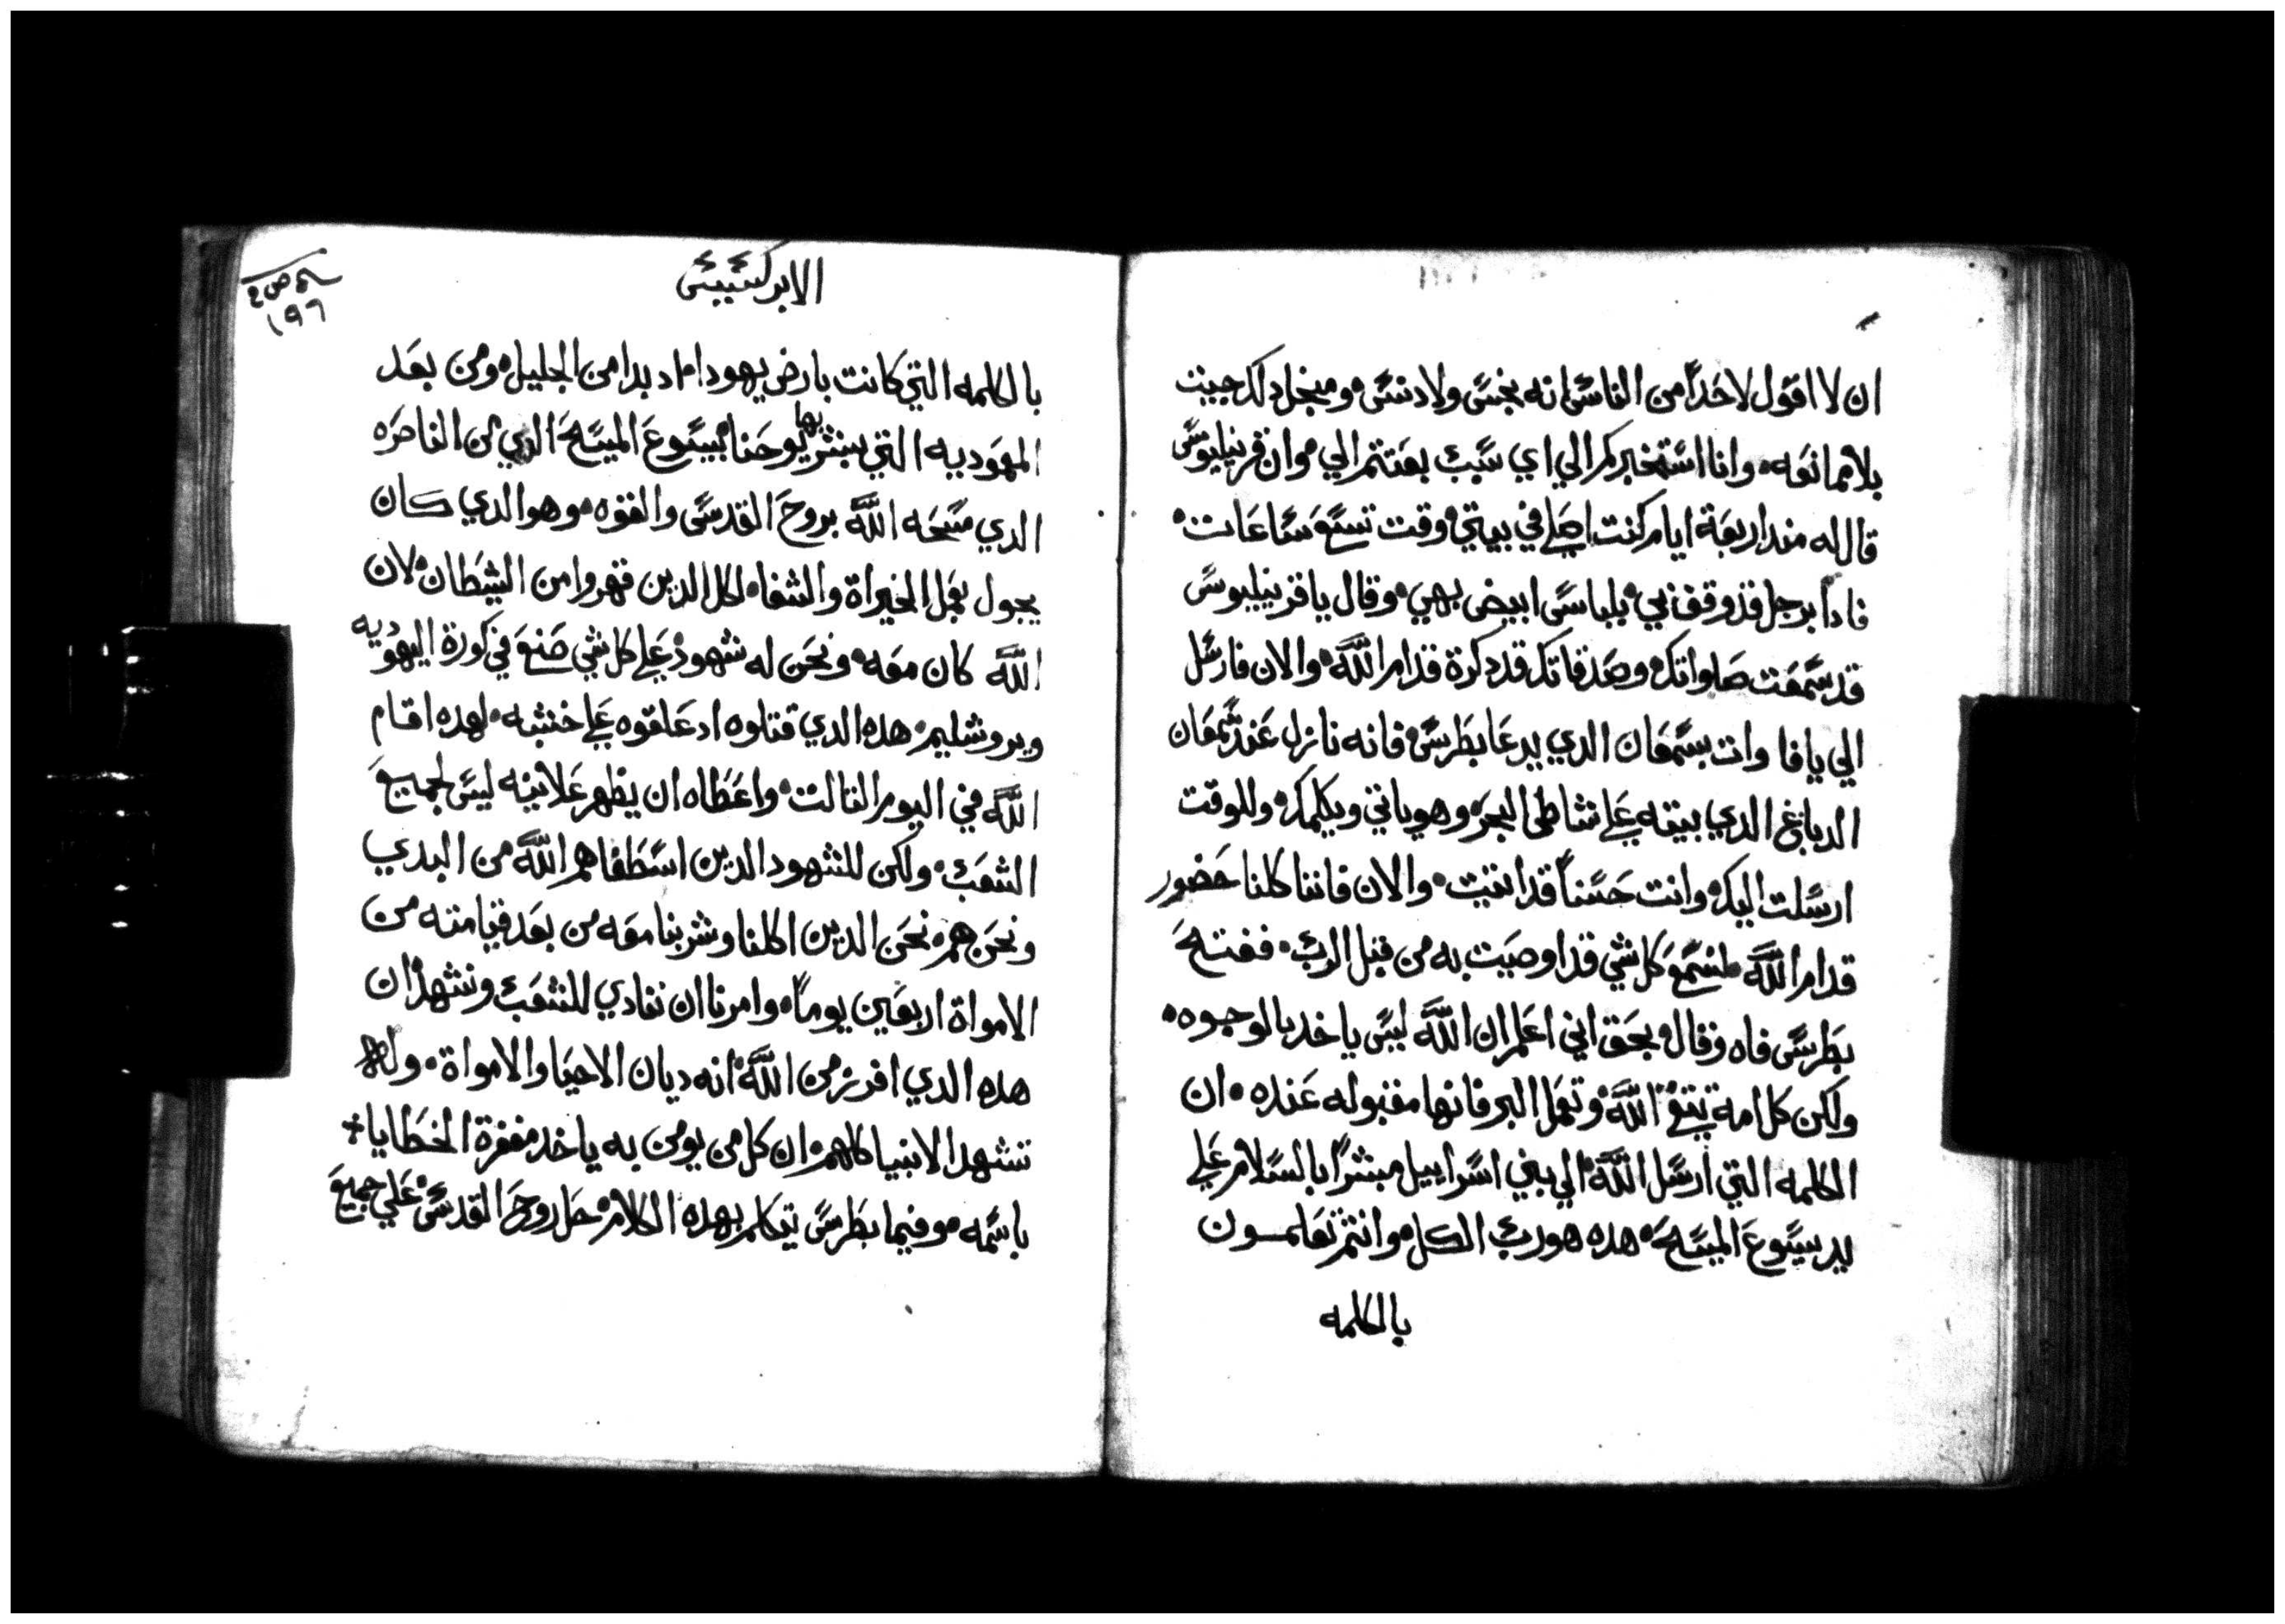 ان لا اقول لاحداً من الناس انه نجس ولا دنس ومنجل دلك جيت
بلا ممانعه وانا استخبركم الي اي سبب بعتتم الي وان قرنيليوس
قال له مند اربعة ايام كنت اصلي في بيتي وقت تسع ساعات
فادا برجل قد وقف بي بلباس ابيض بهي وقال يا قرنيليوس
قد سمعت صلواتك وصدقاتك قد دكرة قدام الله والان فارسل
الي يافا وات بسمعان الدي يدعا بطرس فانه نازل عند سمعان
الدباغ الدي بيته علي شاطي البحر وهو ياتي ويكلمك وللوقت
ارسلت اليك وانت حسناً قد اتيت والان فاننا كلنا حضور
قدام الله لنسمع كل شي قد اوصيت به من قبل الرب ففتح
بطرس فاه وقال بحق اني اعلم ان الله ليس ياخد بالوجوه
ولكن كل امه تتقي الله وتعمل البر فانها مقبوله عنده ان
الكلمه التي ارسل الله الي بني اسراييل مبشراً بالسلام علي
يد يسوع المسيح هده هو رب الكل وانتم تعلمون
بالكلمه
الابركسيس
١٩٦
بالكلمه التي كانت بارض يهودا اد بدا من الجليل ومن بعد
المعموديه التي بشر بها يوحنا بيسوع المسيح الدي من الناصره
الدي مسحه الله بروح القدس والقوه وهو الدي كان
يجول بعمل الخيراة والشفاء لكل الدين قهروا من الشيطان لان
الله كان معه ونحن له شهود علي كل شي صنع في كورة اليهوديه
ويروشليم هده الدي قتلوه اد علقوه علي خشبه لهده اقام
الله في اليوم التالت واعطاه ان يظهر علانيه ليس لجميع
الشعب ولكن للشهود الدين اسطفاهم الله من البدي
ونحن هم نحن الدين اكلنا وشربنا معه من بعد قيامته من
الامواة اربعين يوماً وامرنا ان ننادي للشعب ونشهد ان
هده الدي افرز من الله انه ديان الاحيا والامواة ولهده
تشهد الانبيا كلهم ان كل من يومن به ياخد مغفرة الخطايا
باسمه وفيما بطرس يتكلم بهده الكلام حل روح القدس علي جميع